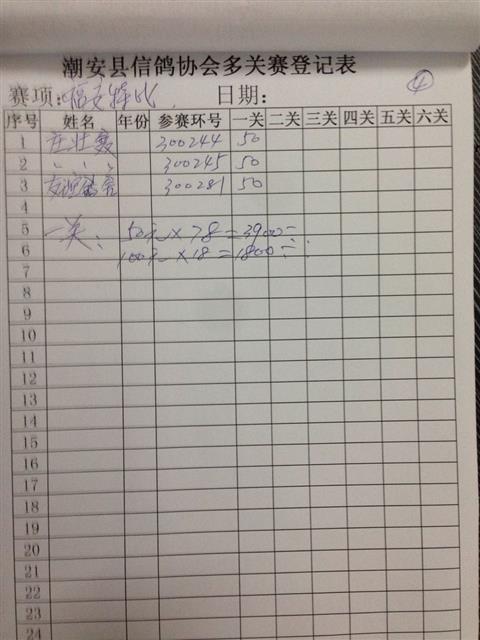 潮安县信鸽协会多关赛登记表
④
赛项: 特比 日期:
序号 姓名 年份 参赛环号 一关 二关 三关 四关 五关 六关
1 庄壮 300244 50
2 〃 〃 〃 300245 50
3 友谊鸽舍 300281 50
4
5 一关: 50元×78=3900元
6 100元×18=1800元
7
8
9
10
11
12
13
14
15
16
17
18
19
20
21
22
23
24